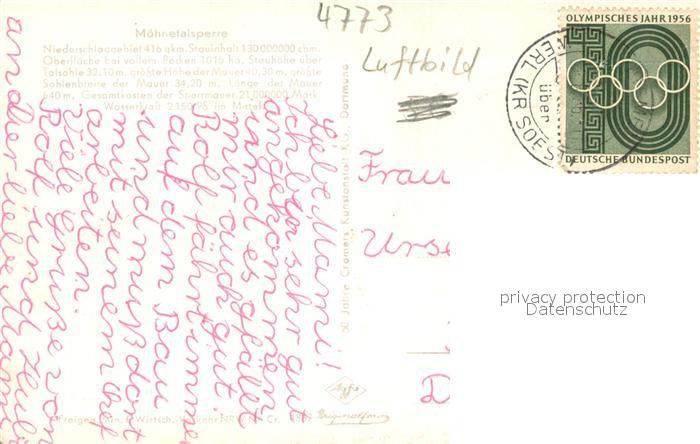 4773
Luftbild
Möhnetalsperre
Niederschlaggebiet 416 qkm. Stauinhalt 130 000 000 cbm.
Oberfläche bei vollem Becken 1016 ha. Stauhöhe über
Talsohle 32,10 m, größte Höhe der Mauer 40,30 m, größte
Sohlenbreite der Mauer 34,20 m. Länge der Mauer
640 m. Gesamtkosten der Sperrmauer 21 000 000 Mark.
Wasserkraft 2150 PS im Mittel
Liebe Mami!
Ich bin sehr gut
angekommen
und es gefällt
mir auch gut.
Rolf fährt immer
auf dem Bau
und muß dort
mit seinem Chef
arbeiten.
Viele Grüße von
Rolf und
an der liebe Mami
50 Jahre Cramers Kunstanstalt K.G., Dortmund
Frau
Urse
D
Agfa
Originalfoto
Freigeg. Min. f. Wirtsch. Verkehr NRW Cr.
OLYMPISCHES JAHR 1956
DEUTSCHE BUNDESPOST
WERL (KR SOEST)
über
privacy protection
Datenschutz